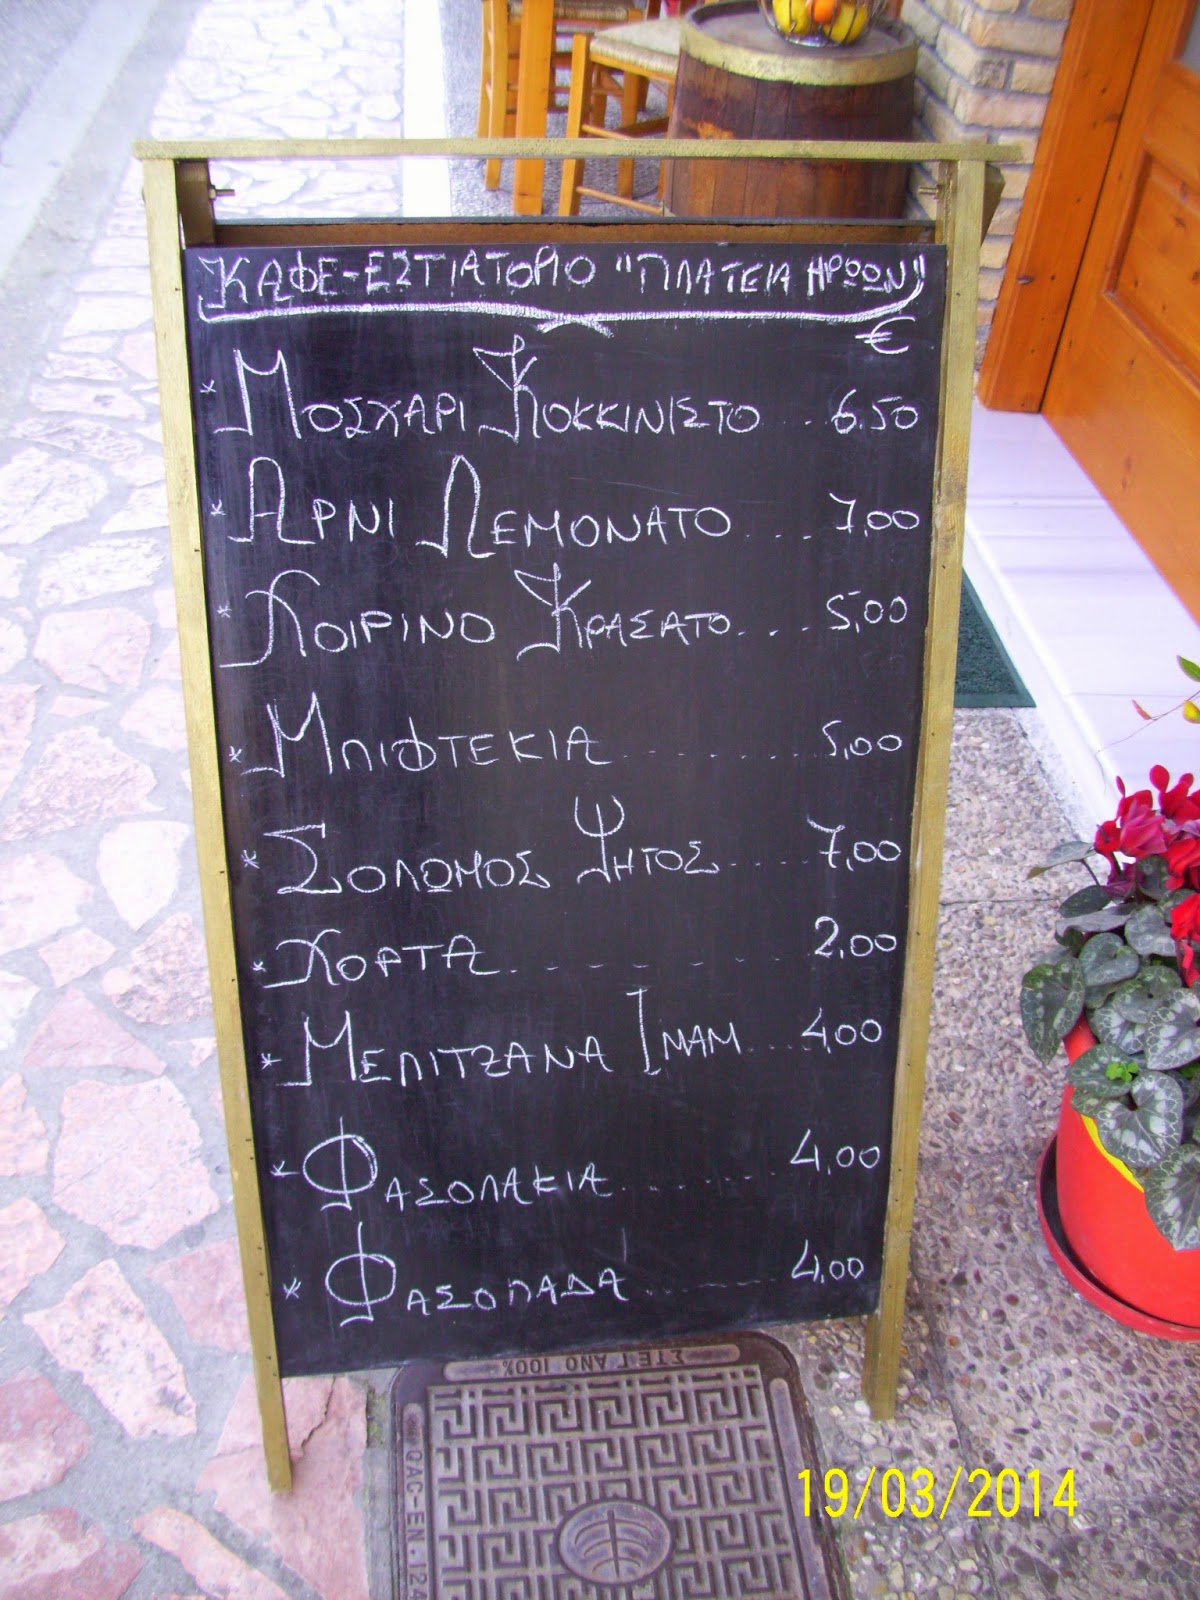 ΚΑΦΕ-ΕΣΤΙΑΤΟΡΙΟ "ΠΛΑΤΕΙΑ ΗΡΩΩΝ"
€
* ΜΟΣΧΑΡΙ ΚΟΚΚΙΝΙΣΤΟ .. 6.50
* ΑΡΝΙ ΛΕΜΟΝΑΤΟ ... 7,00
* ΧΟΙΡΙΝΟ ΚΡΑΣΑΤΟ ... 5,00
* ΜΠΙΦΤΕΚΙΑ ......... 5,00
* ΣΟΛΩΜΟΣ ΨΗΤΟΣ ..... 7,00
* ΧΟΡΤΑ ........ 2,00
* ΜΕΛΙΤΖΑΝΑ ΙΜΑΜ ... 4,00
* ΦΑΣΟΛΑΚΙΑ ....... 4,00
* ΦΑΣΟΛΑΔΑ ....... 4,00
ΣΤΕΓΑΝΟ 100%
QAC-EN-124
19/03/2014